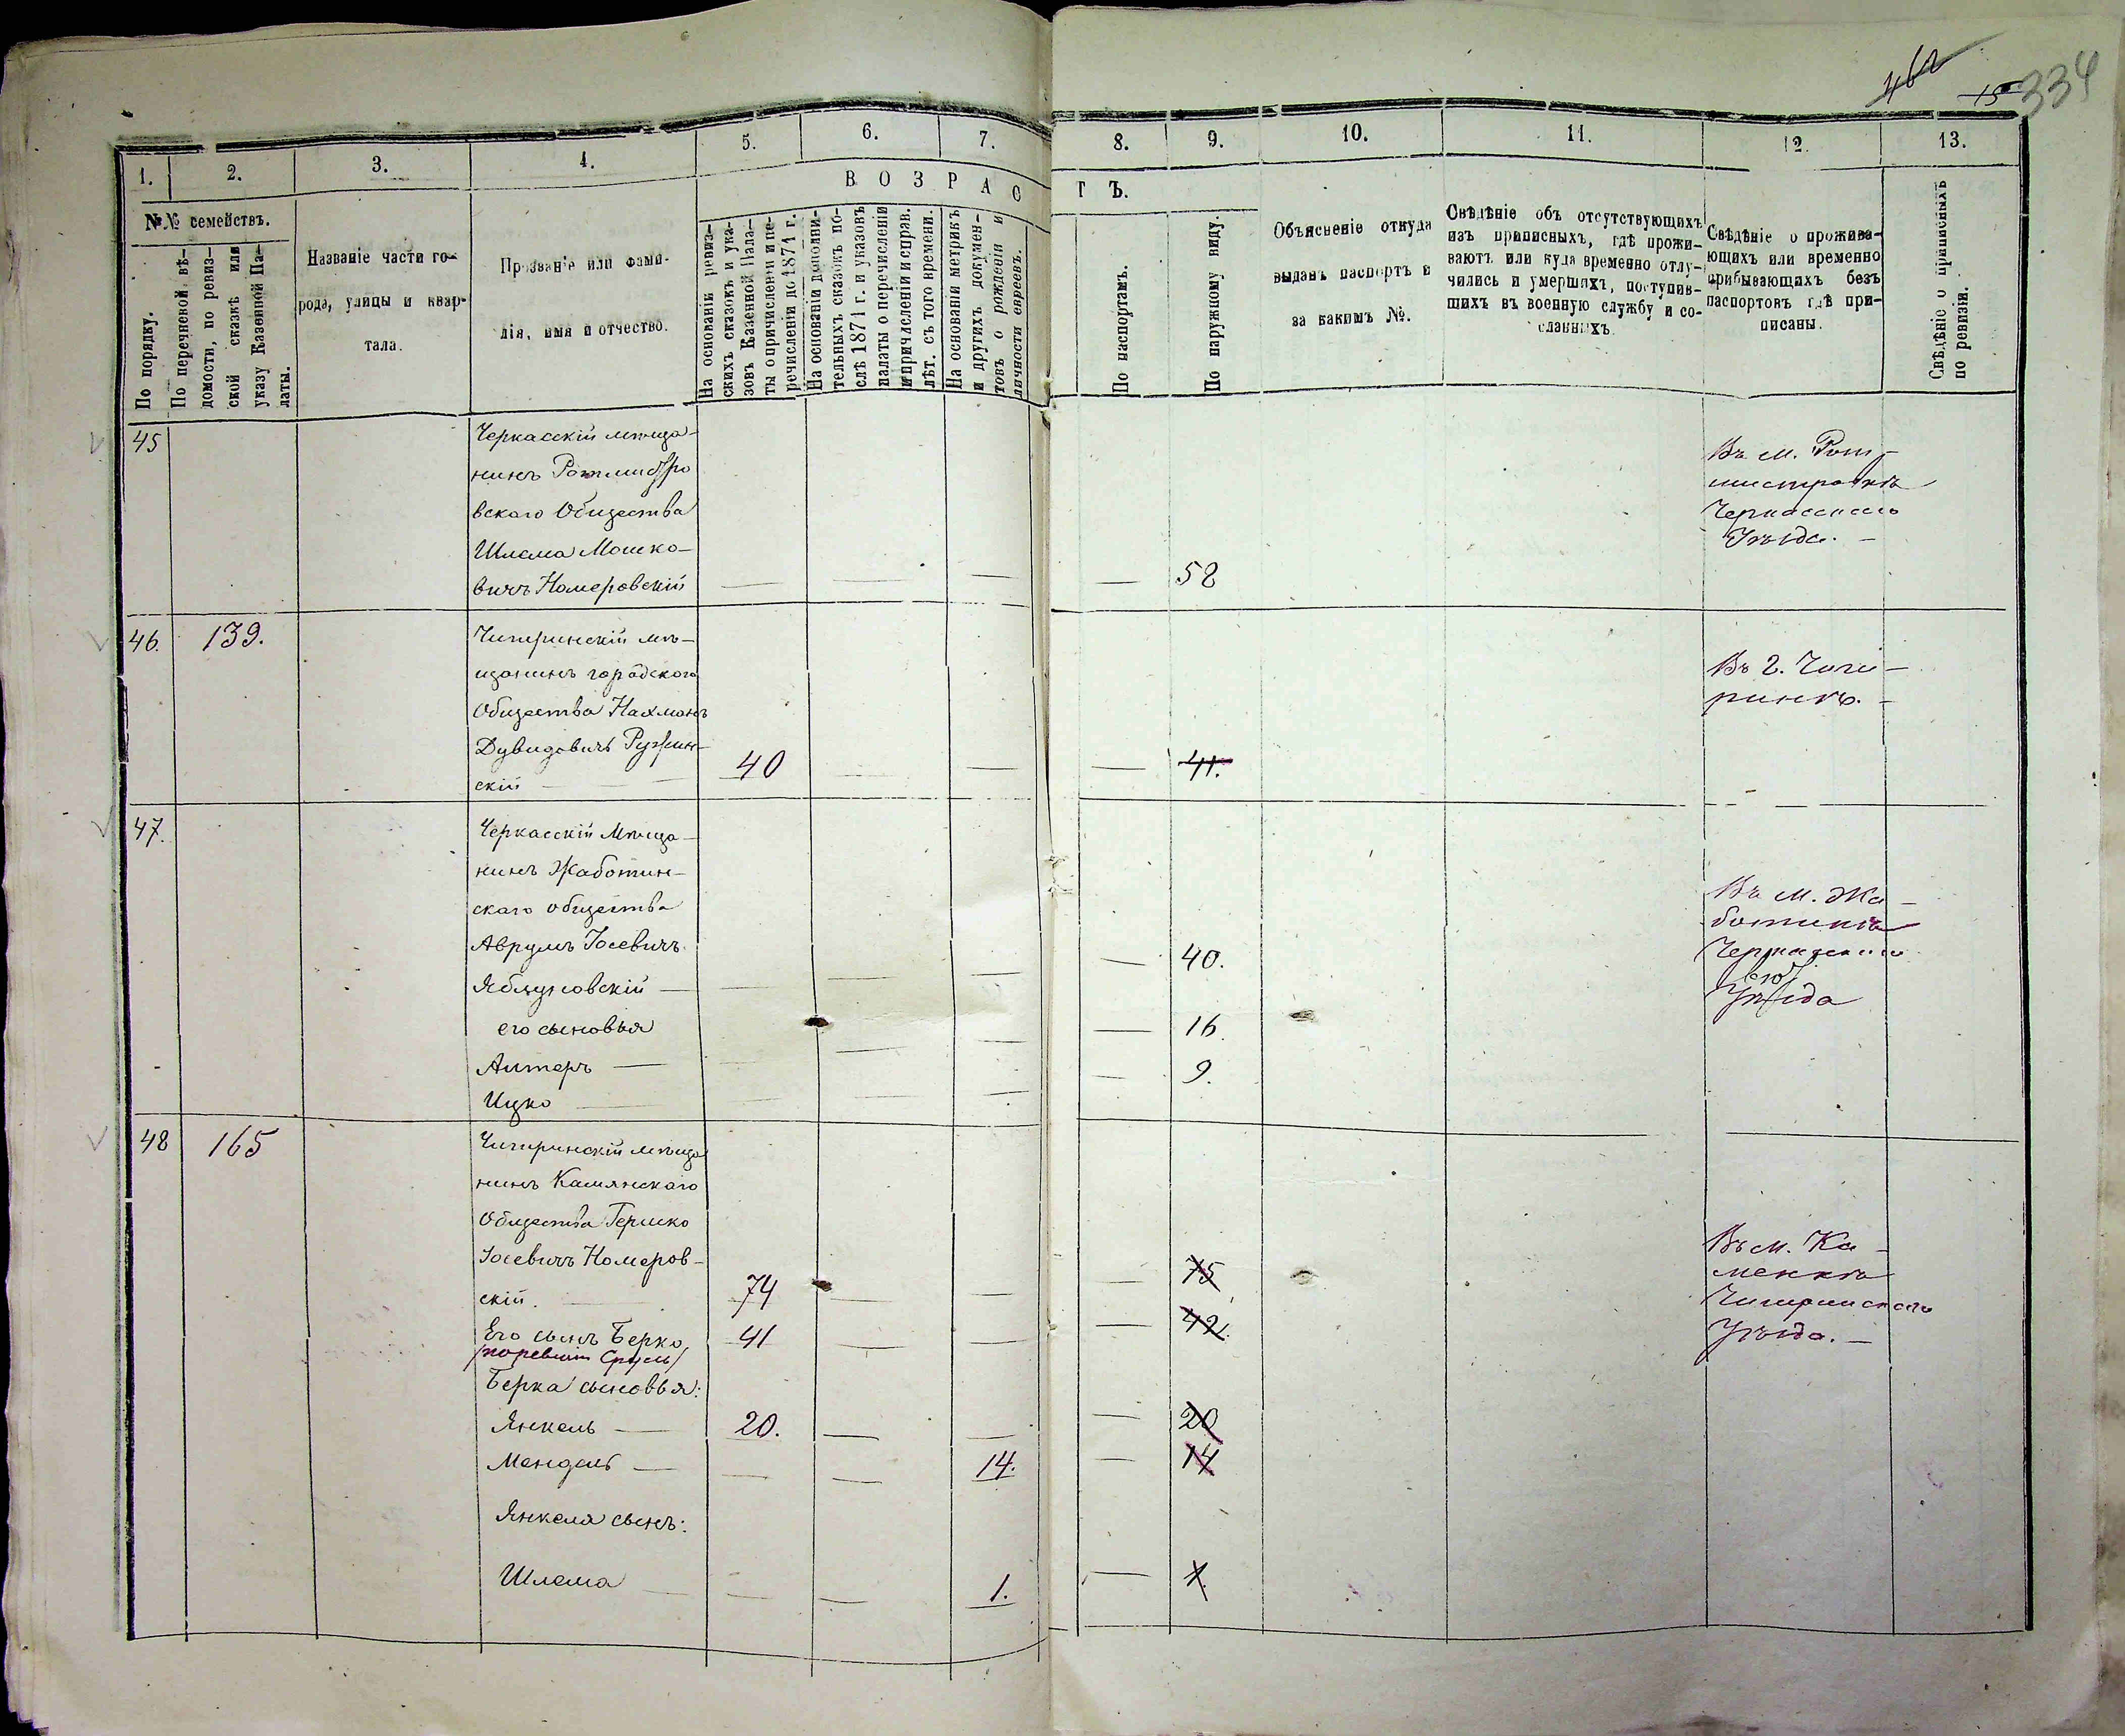 462 15 334
1. 2. 3. 4. 5. 6. 7. 8. 9. 10. 11. 12. 13.
ВОЗРАСТЪ.
№№ семействъ.
По порядку.
По перечневой вѣ-
домости, по ревиз-
ской сказкѣ или
указу Казенной Па-
латы.
Названіе части го-
рода, улицы и квар-
тала.
Прозваніе или фами-
лія, имя и отчество.
На основаніи ревиз-
скихъ сказокъ и ука-
зовъ Казенной Пала-
ты о причисленіи и пе-
речисленіи до 1871 г.
На основаніи дополни-
тельныхъ сказокъ по-
слѣ 1871 г. и указовъ
палаты о перечисленіи
и причисленіи и справ.
лѣт. съ того времени.
На основаніи метрикъ
и другихъ докумен-
товъ о рожденіи и
личности евреевъ.
По паспортамъ.
По наружному виду.
Объясненіе откуда
выданъ паспортъ и
за какимъ №.
Свѣдѣніе объ отсутствующихъ
изъ приписныхъ, гдѣ прожи-
ваютъ или куда временно отлу-
чились и умершихъ, поступив-
шихъ въ военную службу и со-
сланныхъ.
Свѣдѣніе о прожива-
ющихъ или временно
прибывающихъ безъ
паспортовъ гдѣ при-
писаны.
Свѣдѣніе о приписныхъ
по ревизіи.
45
Черкасскій мѣща-
нинъ Ротмистро
вскаго Общества
Шлема Мошко-
вичъ Номеровскій — — — — 58
Въ м. Рот-
мистровкѣ
Черкасскаго
Уѣзда. —
46. 139.
Чигиринскій мѣ-
щанинъ городскаго
Общества Нахманъ
Дувидовичъ Ружин-
скій — 40 — — — 41.
Въ г. Чиги-
ринѣ. —
47.
Черкасскій Мѣща-
нинъ Жаботин-
скаго общества
Аврумъ Іосевичъ
Яблуновскій — — — — — 40.
его сыновья
Алтеръ — — — — — 16.
Ицко — — — — — 9.
Въ м. Жа-
ботинѣ
Черкасска
го
Уѣзда
48 165
Чигиринскій мѣща
нинъ Камянскаго
Общества Гершко
Іосевичъ Номеров-
скій. — 74 — — — 75
Его сынъ Берко 41 — — — 42.
/по ревизіи Сруль/
Берка сыновья:
Янкель — 20. — — — 20
Мендель — — — 14. — 14
Янкеля сынъ:
Шлема — — — 1. — 1.
Въ м. Ка-
менкѣ
Чигиринскаго
Уѣзда. —